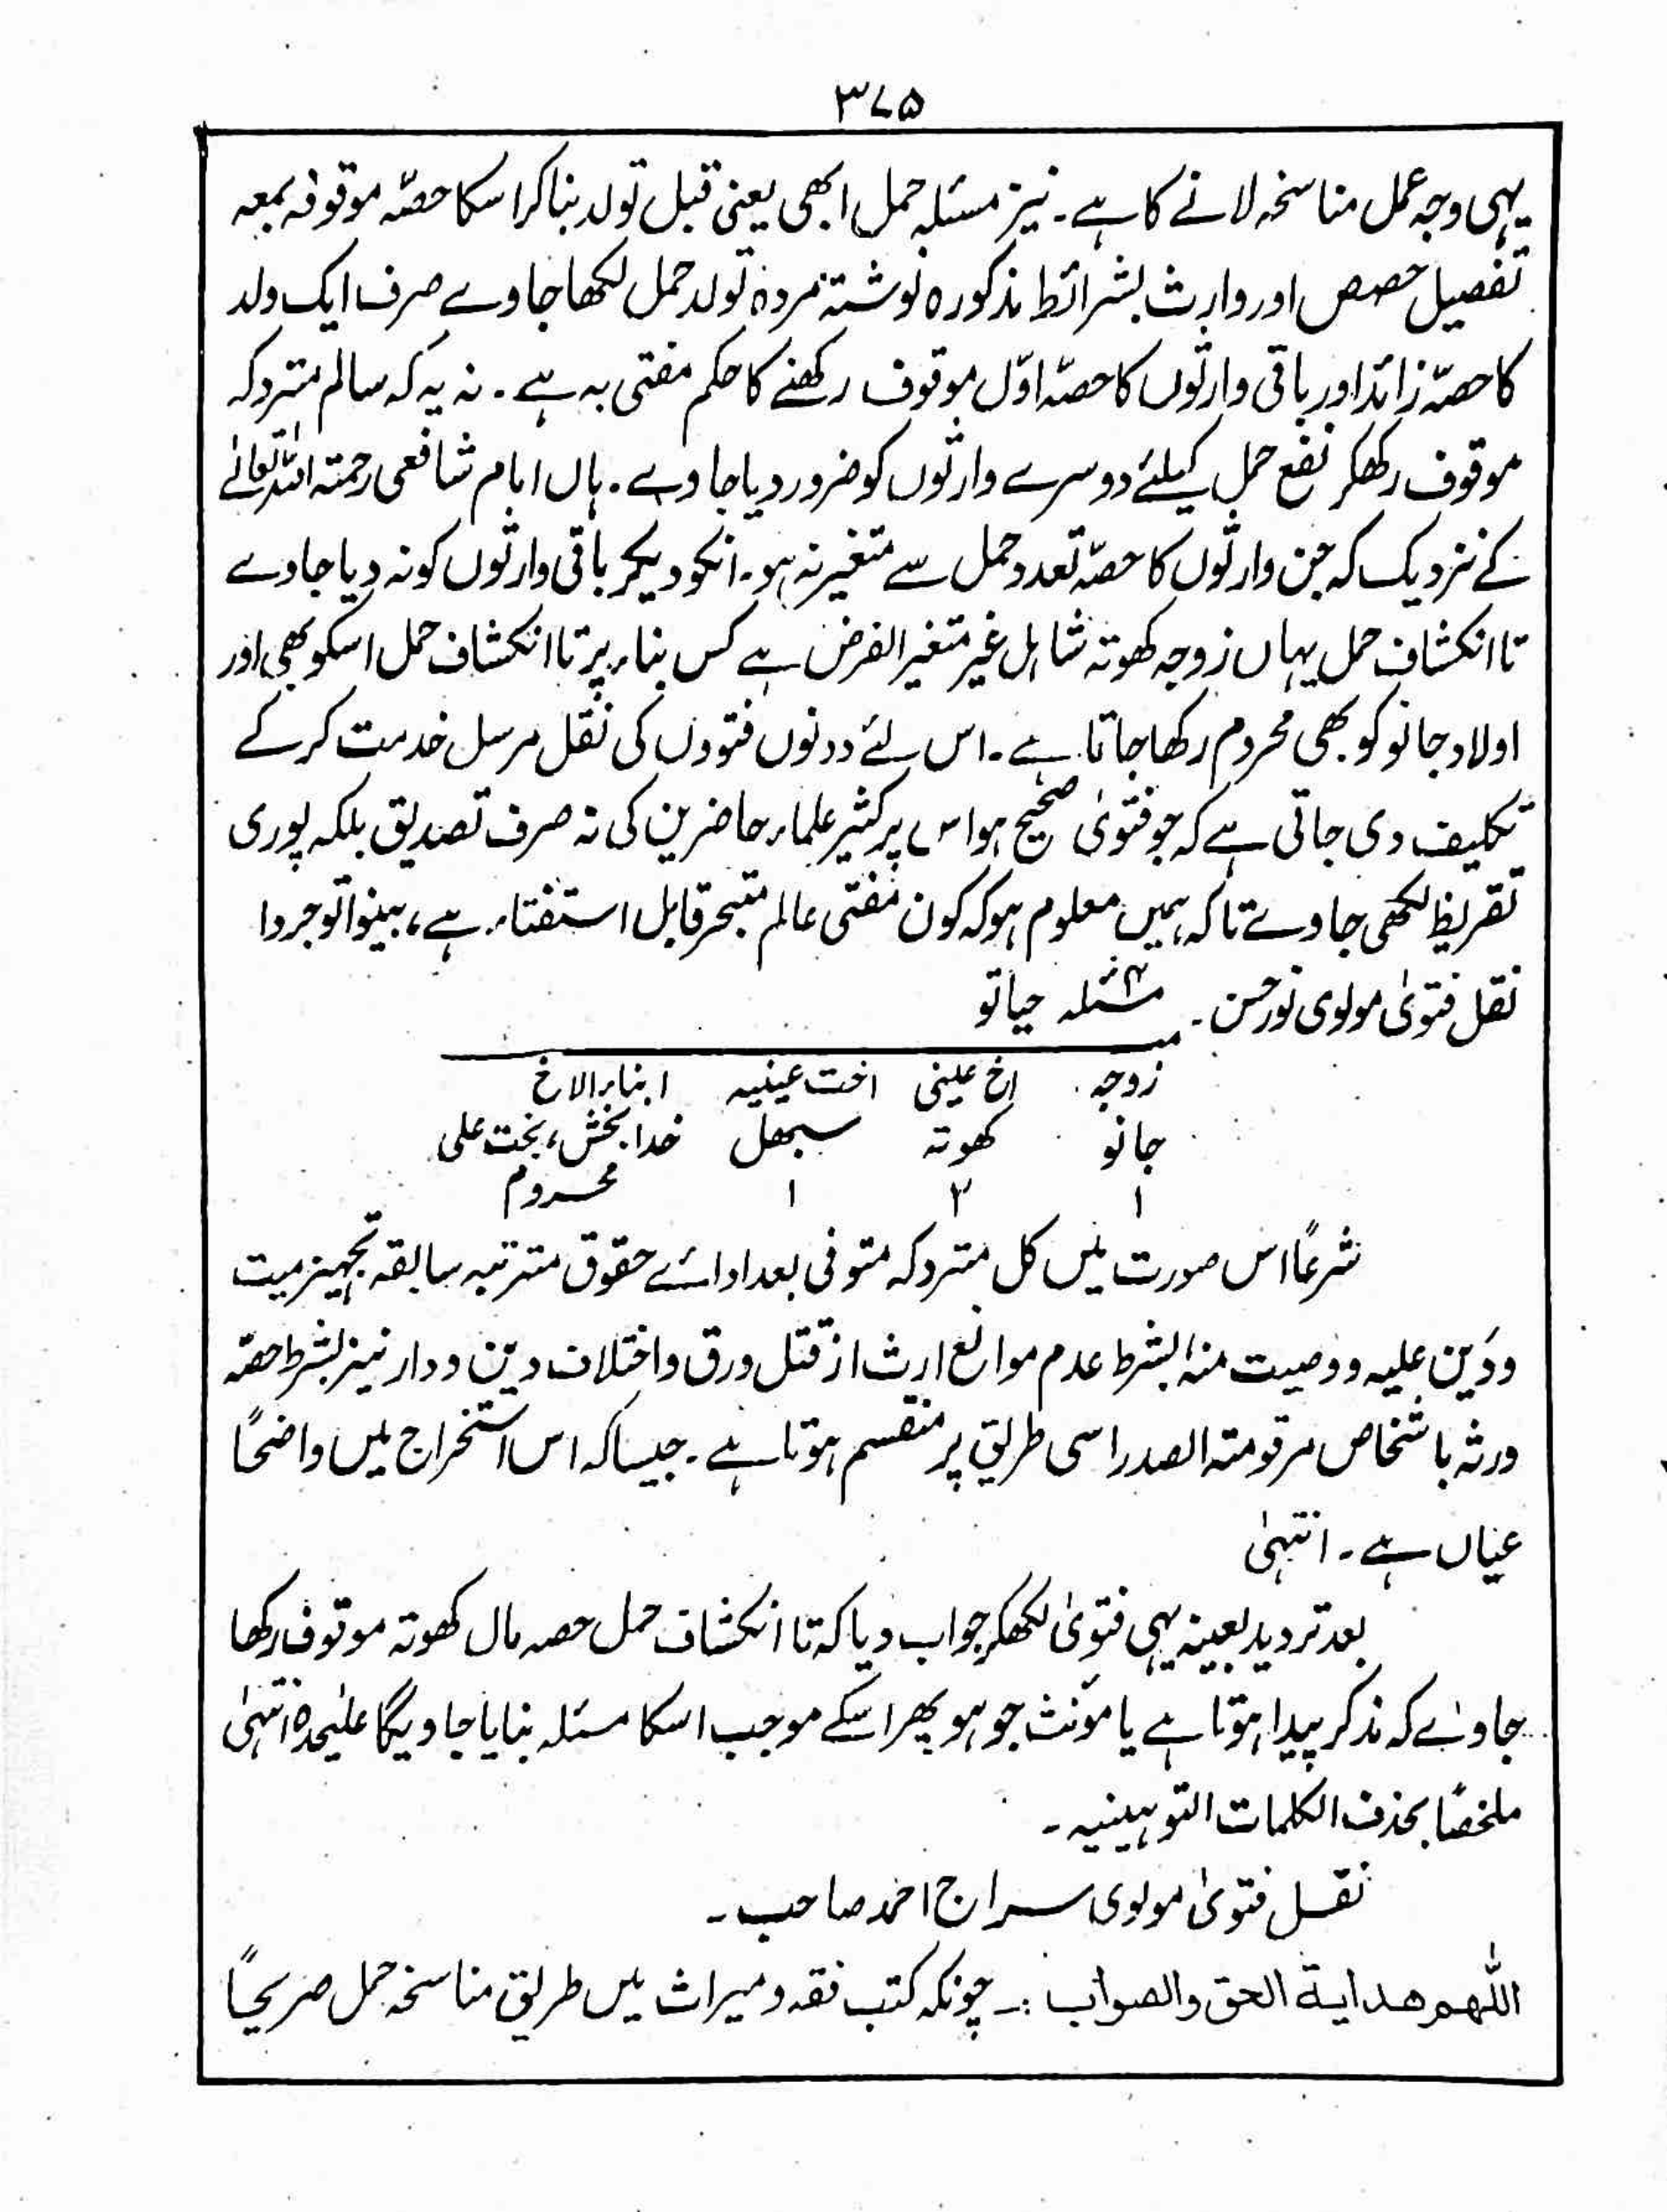 ۳۷۵
یہی وجہ عمل مناسخہ لانے کا ہے۔ نیز مسئلہ حمل ابھی یعنی قبل تولد بنا کر اسکا حصّہ موقوفہ بمعہ
تفصیل حصص اور وارث بشرائط مذکورہ نوشتۂ مردہ تولد حمل لکھا جاوے صرف ایک ولد
کا حصّہ زائد اور باقی وارثوں کا حصّہ اوّل موقوف رکھنے کا حکم مفتی بہ ہے۔ نہ یہ کہ سالم متروکہ
موقوف رکھکر نفع حمل کیلئے دوسرے وارثوں کو ضرور دیا جاوے۔ ہاں امام شافعی رحمتہ اللہ تعالےٰ
کے نزدیک کہ جن وارثوں کا حصّہ تعدد حمل سے متغیر نہ ہو۔ انکو دیکر باقی وارثوں کو نہ دیا جاوے
تا انکشاف حمل یہاں زوجہ کھوتہ شاہل غیر متغیر الفرض ہے کس بناء پر تا انکشاف حمل اسکو بھی اور
اولاد جانو کو بھی محروم رکھا جاتا ہے۔ اس لئے دونوں فتووں کی نقل مرسل خدمت کرکے
تکلیف دی جاتی ہے کہ جو فتویٰ صحیح ہو اس پر کثیر علماء حاضرین کی نہ صرف تصدیق بلکہ پوری
تقریظ لکھی جاوے تاکہ ہمیں معلوم ہو کہ کون مفتی عالم متبحر قابل استفتاء ہے، بینوا توجروا
نقل فتویٰ مولوی نور حسن۔ مسئلہ ۴ حیاتو
زوجہ اخ عینی اخت عینیہ ابناء الاخ
جانو کھوتہ سبھل خدابخش، بخت علی
۱ ۲ ۱ محروم
شرعًا اس صورت میں کل متروکہ متوفی بعد ادائے حقوق مترتبہ سابقہ تجہیز میت
ودَین علیہ ووصیت منہ بشرط عدم موانع ارث از قتل ورق واختلاف دین ودار نیز بشرط حصّہ
ورثہ باشخاص مرقومتہ الصدر اسی طریق پر منقسم ہوتا ہے۔ جیسا کہ اس استخراج میں واضحًا
عیاں ہے۔ انتہیٰ
بعد تردید بعینہ یہی فتویٰ لکھکر جواب دیا کہ تا انکشاف حمل حصہ مال کھوتہ موقوف رکھا
جاوے کہ مذکر پیدا ہوتا ہے یا مؤنث جو ہو پھر اسکے موجب اسکا مسئلہ بنایا جاویگا علیٰحدہ انتہیٰ
ملخصًا بحذف الکلمات التوہینیہ۔
نقل فتویٰ مولوی سراج احمد صاحب۔
اللّٰھم ھدایۃ الحق والصواب :۔ چونکہ کتب فقہ ومیراث میں طریق مناسخہ حمل صریحًا